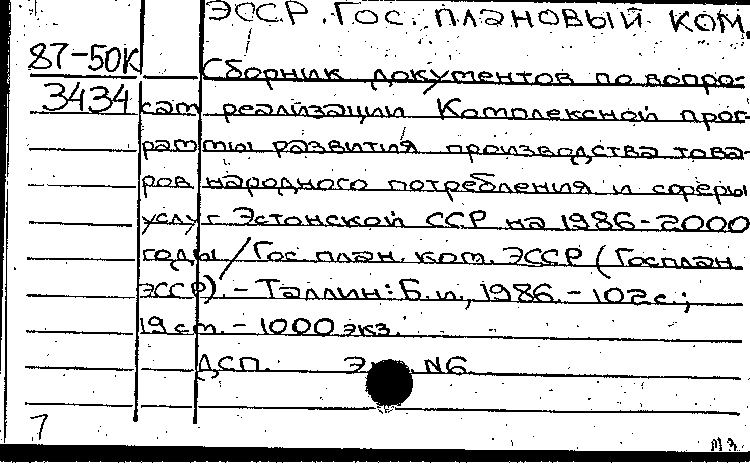 ЭССР. Гос. плановый ком.
87-50К Сборник документов по вопро-
3434 сам реализации Комплексной прог-
раммы развития производства това-
ров народного потребления и сферы
услуг Эстонской ССР на 1986-2000
годы / Гос. план. ком. ЭССР (Госплан
ЭССР). - Таллин: Б.и., 1986. - 102 с.;
19 см. - 1000 экз.
ДСП. N6
7